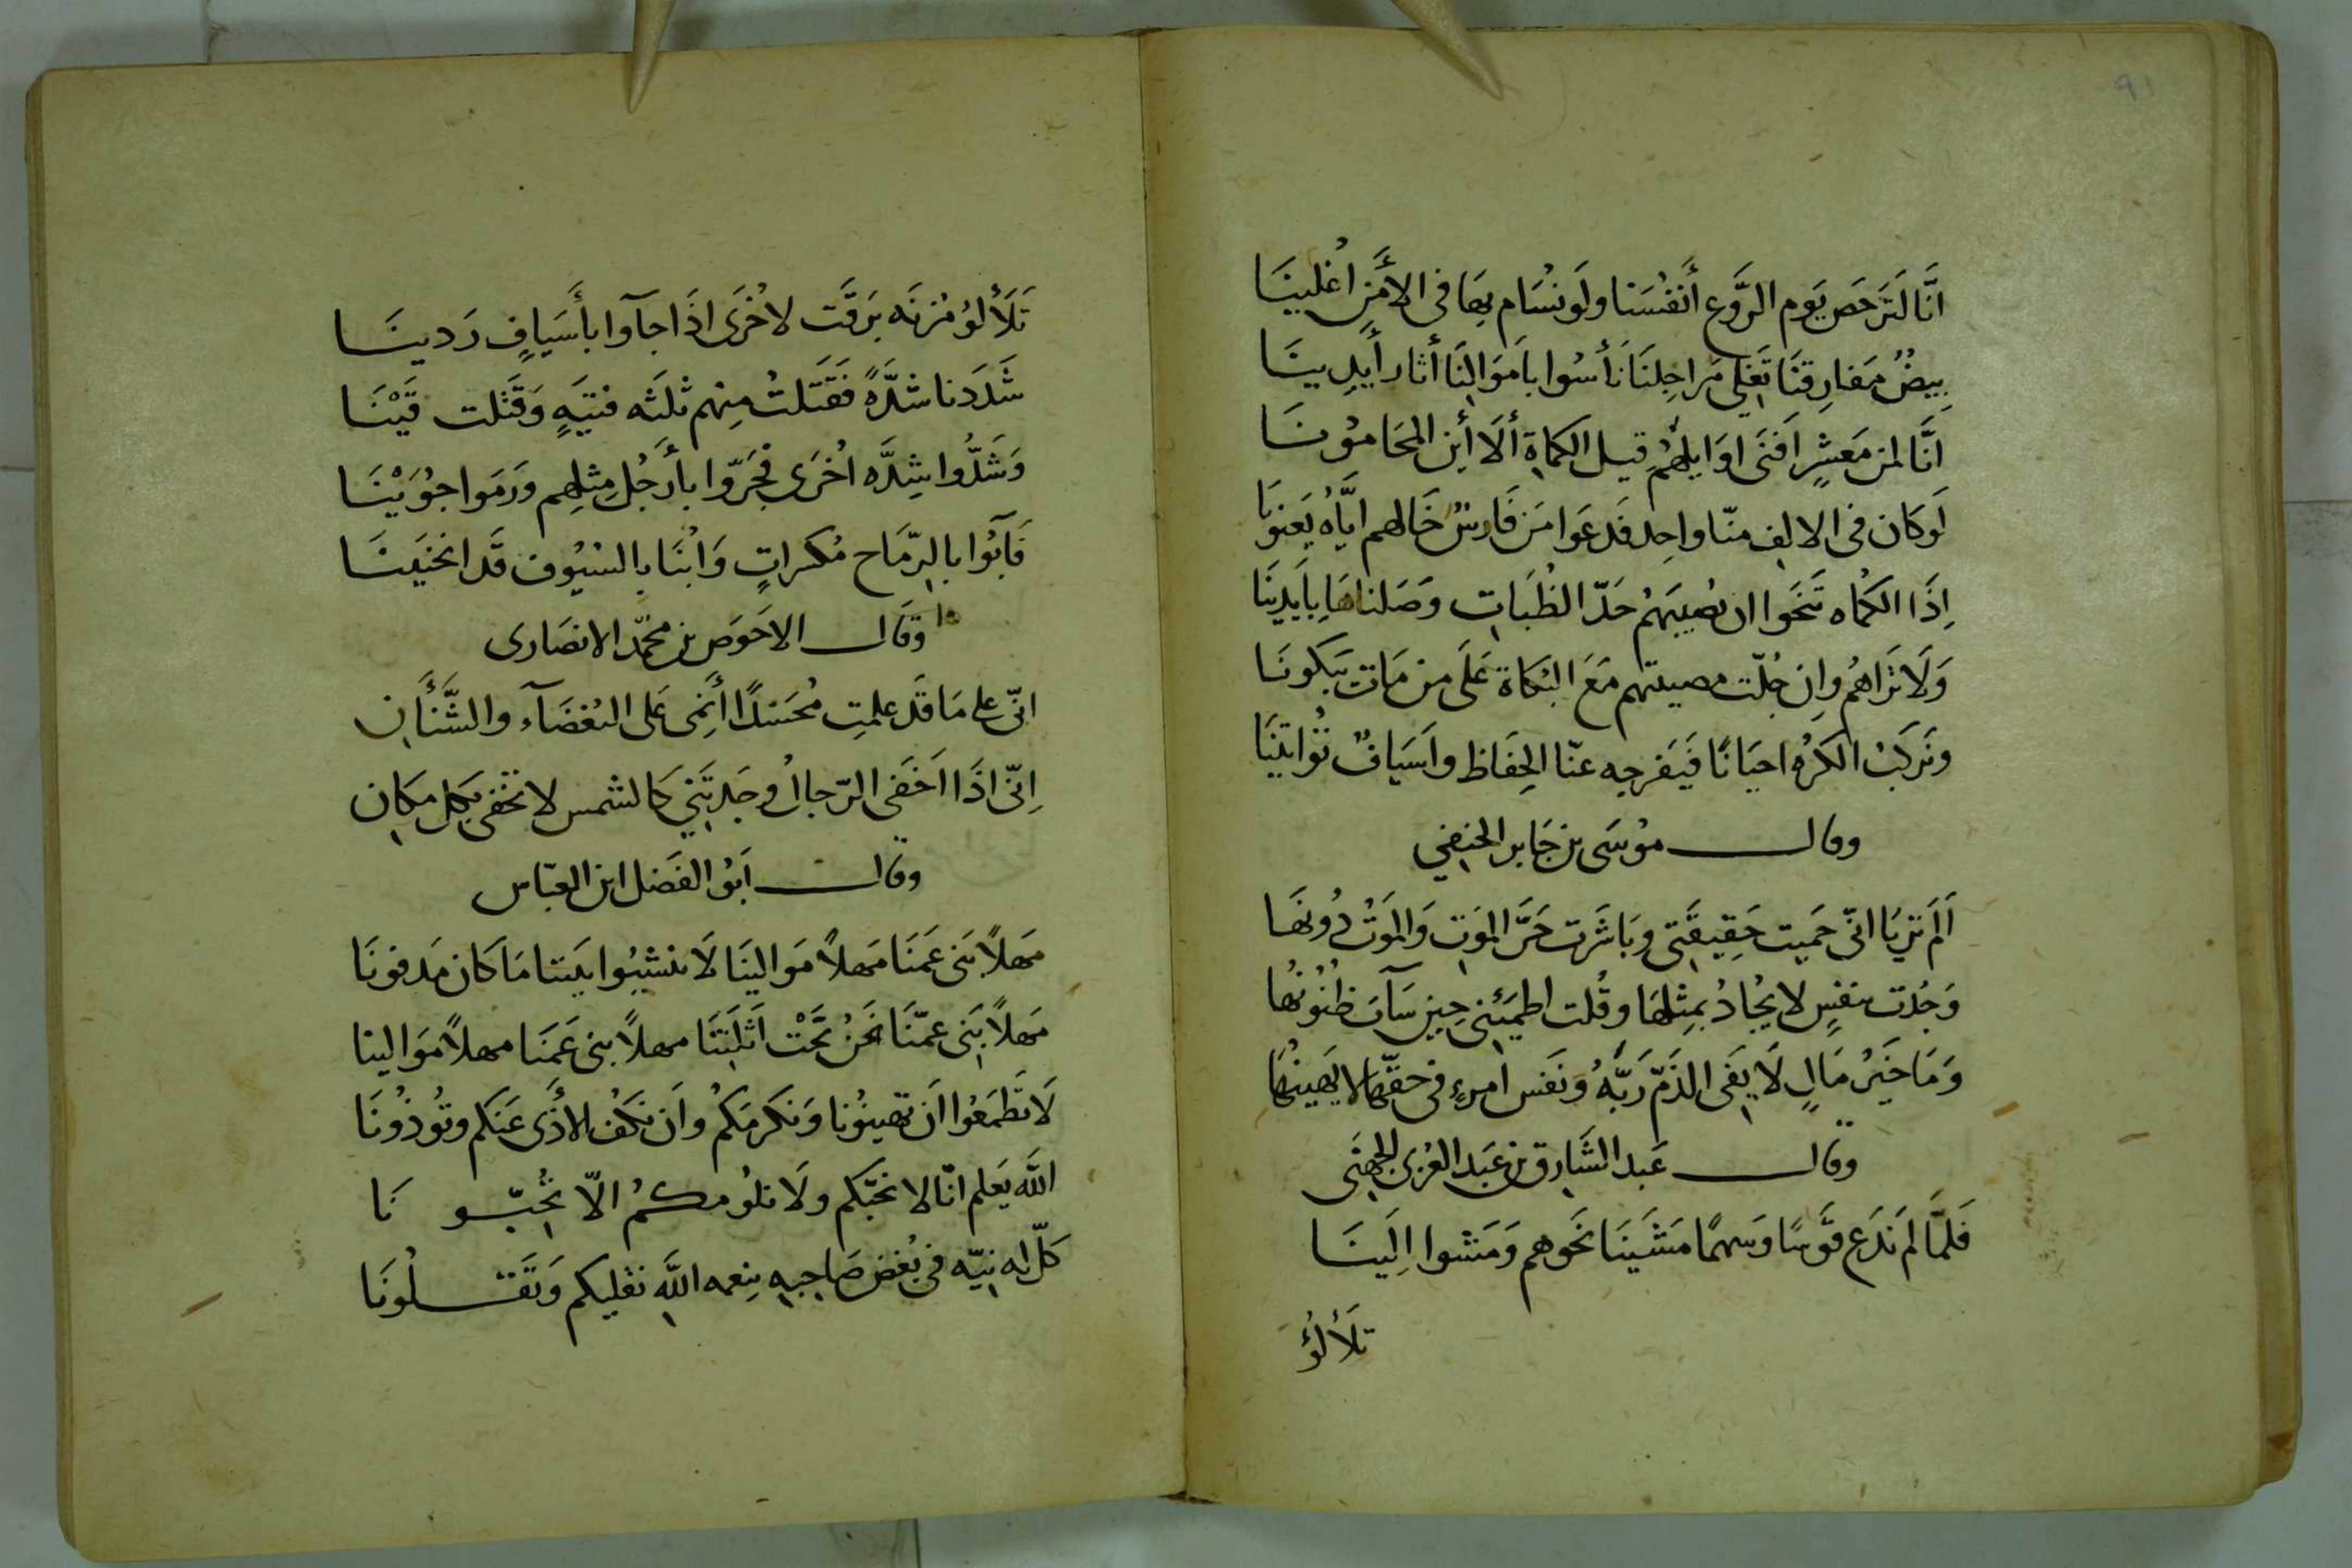 ٩١
انَّا لَنَرخَص يَوم الرَّوع أَنفُسَنا ولَو نُسَام بهَا فى الأَمَنِ اُغلينَا
بِيضٌ مَفارِقنَا تَغلِى مَراجِلنَا نَأسُوا بامَوَالِنَا أثار أَيدِينَا
انَّا لمن مَعشرٍ اَفنَى اوَايلهُم قيل الكماة أَلَا أَين المحَامُونَا
لَو كَان فى الالف منّا واحِد فَدعَوا مَن فَارسٌ خَالهم ايَّاهُ يَعنونَا
اِذَا الكُماه تَنَخَوا ان يُصيبَهُم حَدّ الظُبَات وصَلناهَا بِايَدِينَا
وَلَا تَراهُم واِن جُلّت مصيبتهم مَعَ البُكاة عَلَى من مَات يَبكونَا
ونَركَبُ الكَرُه احيَانًا فَيَفرجه عنّا الحِفَاظ واَسيَافٌ تُؤاتيَنَا
وقال مُوسَى بن جَابر الحنفِى
اَلَم تريَا انّى حَميت حَقِيقَتِى وبَاشَرت حَرَّ المَوت وَالمَوتُ دُونهَا
وَجُدت بنفسٍ لا يُجادُ بمِثلهَا وقُلت اطمَئنى حِين سَآت ظنُونُها
وَمَا خَيرُ مَالٍ لَا يَقى الذَمّ رَبَّهُ ونَفس امرءٍ فى حقّها لا يُهينُها
وقال عَبد الشَارق بن عَبد العُزى الجهنَى
فَلمَّا لَم نَدَع قَوسًا وَسهمًا مَشَينَا نَحَوهم وَمَشوا اِلَينَا
تلَألُؤ
تَلَألُؤ مُزنَه بَرقَت لاُخرَى اذَا جآوا بأَسيَافٍ رَدينَا
شَدَدنا شدَّهً فَقَتَلتُ مِنهم ثلَثه فتيَهٍ وَقَتَلت قَيْنَا
وَشَدُّوا شِدَّه اُخرَى فجَرّوا بأَرجُلِ مِثلهم ورَمَوا جُوَيْنَا
فَآبُوا بالرّمَاح مُكسراتٍ وَاُبنَا بالسُيُوف قَد انحنَينَا
وقال الاحوَص بن محمّد الانصَارى
انّى على مَا قَد علمتِ مُحَسَدًا أَنمِى عَلى البُغضَآء والشَّنَأَن
اِنّى اذَا اخَفَى الرّجالُ وجَدتَنِي كَالشمس لا تخفى بَكل مَكان
وقال اَبُو الفَضل ابن العبّاس
مَهلاً بَنى عَمنَا مَهلاً مَوالينَا لَا تنشِبُوا بَيننا مَا كَان مَدفونَا
مَهلاً بَنى عمّنَا نَحنُ تَحْت اَثلَتنَا مهلاً بنى عَمنَا مهلاً مَوالينا
لَا تَطمَعُوا اَن تهينُونا وَنكرمَكُم واَن نَكفُ الأذَى عَنكم وتُوذُونَا
اللَه يَعلم انّا لا نحَبّكم ولَا نلُومكمُ الاّ تُحبّونَا
كَلّ له نيّه فى بُغض صَاحِبه بِنعمه اللَه نقليكم وَتَقلُونَا